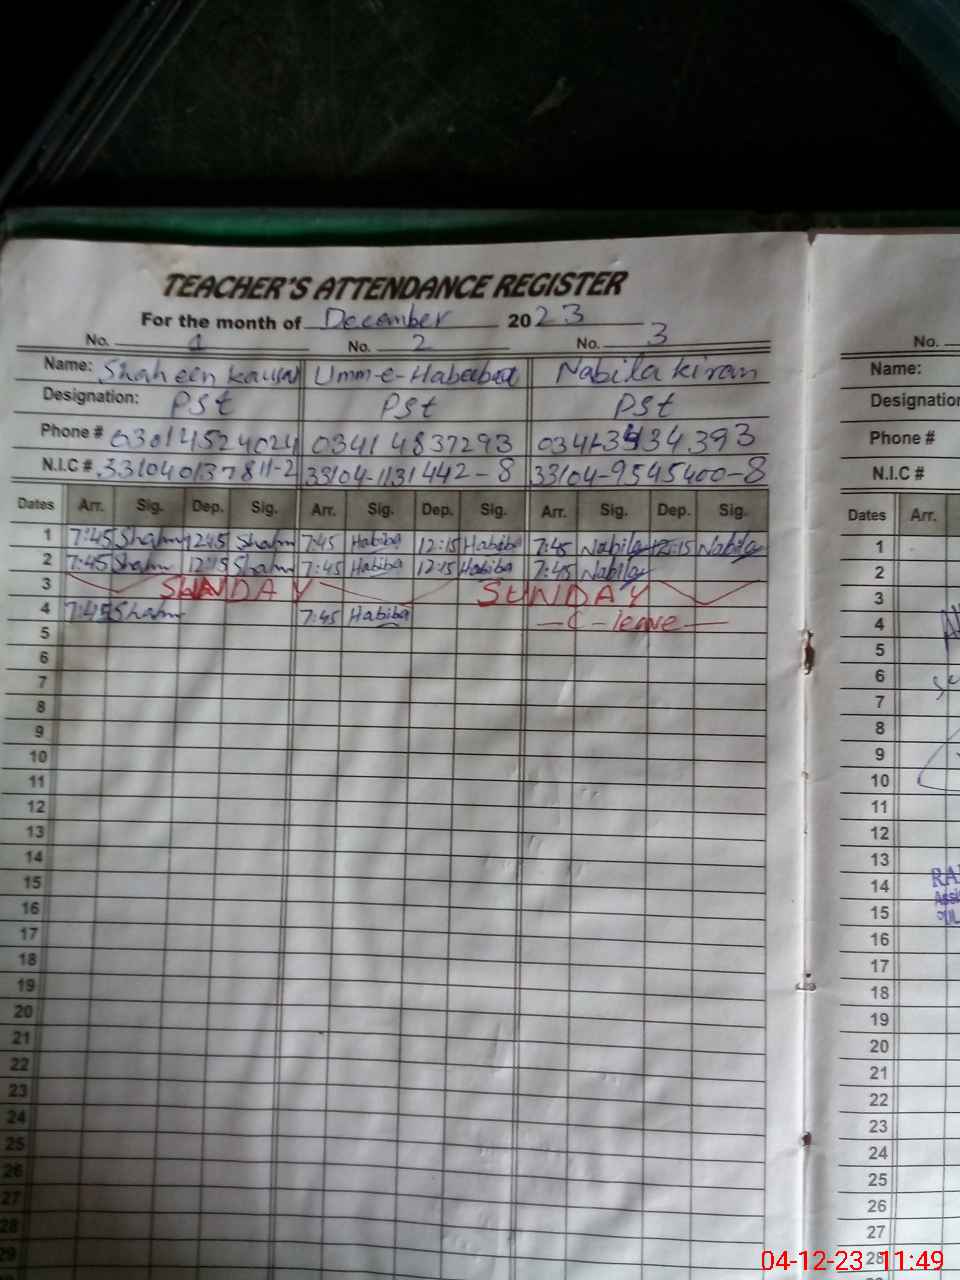 TEACHER'S ATTENDANCE REGISTER
For the month of December 2023
No. 1 No. 2 No. 3 No.
Name: Shaheen kausar Umm-e-Habeeba Nabila kiran Name:
Designation: PSt PSt PSt Designation
Phone # 03014524024 0341 4837293 Phone #
N.I.C # 33104-1131442-8 33104-9545400-8 N.I.C #
Dates Arr. Sig. Dep. Sig. Arr. Sig. Dep. Sig. Arr. Sig. Dep. Sig. Dates Arr.
1 7:45 Sham 1245 Sham 7:45 Habiba 12:15 Habiba 7:45 Nabila 12:15 Nabila 1
2 7:45 Sham 12:15 Sham 7:45 Habiba 12:15 Habiba 7:45 Nabila 2
3 SUNDAY SUNDAY 3
4 7:45 Sham 7:45 Habiba C-leave 4
5 5
6 6
7 7
8 8
9 9
10 10
11 11
12 12
13 13
14 14
15 15
16 16
17 17
18 18
19 19
20 20
21 21
22 22
23 23
24 24
25 25
26 26
27 27
28 28
29
04-12-23 11:49